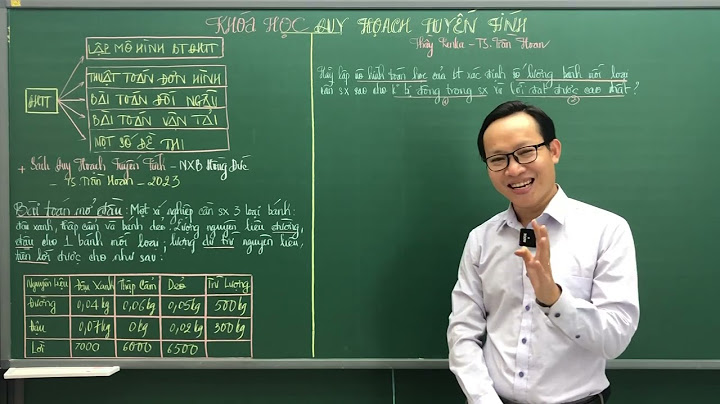 KHÓA HỌC QUY HOẠCH TUYẾN TÍNH
Thầy - TS. Trần Hoan
QHTT
LẬP MÔ HÌNH BT QHTT
THUẬT TOÁN ĐƠN HÌNH
BÀI TOÁN ĐỐI NGẪU
BÀI TOÁN VẬN TẢI
MỘT SỐ ĐỀ THI
+ Sách Quy Hoạch Tuyến Tính - NXB Hồng Đức
- TS. Trần Hoan - 2023
Bài toán mở đầu: Một xí nghiệp cần sx 3 loại bánh:
đậu xanh, thập cẩm và bánh dẻo. Lượng nguyên liệu đường,
đậu cho 1 bánh mỗi loại; lượng dự trữ nguyên liệu,
tiền lời được cho như sau:
Nguyên liệu Đậu Xanh Thập Cẩm Dẻo Trữ Lượng
Đường 0,04 kg 0,06 kg 0,05 kg 500 kg
Đậu 0,07 kg 0 kg 0,02 kg 300 kg
Lời 7000 6000 6500
Hãy lập mô hình toán học của bt xác định số lượng bánh mỗi loại
cần sx sao cho k bị động trong sx và lời đạt được cao nhất?
① ②